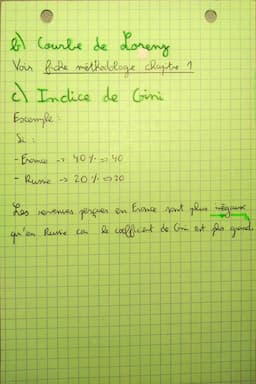 b) Courbe de Lorenz
Voir fiche méthodologe chapitre 1
c) Indice de Gini
Exemple :
Si :
- France -> 40 % => 40
- Russie -> 20 % => 20
Les revenues perçues en France sont plus inégaux
qu'en Russie car le coefficient de Gini est plus grand.